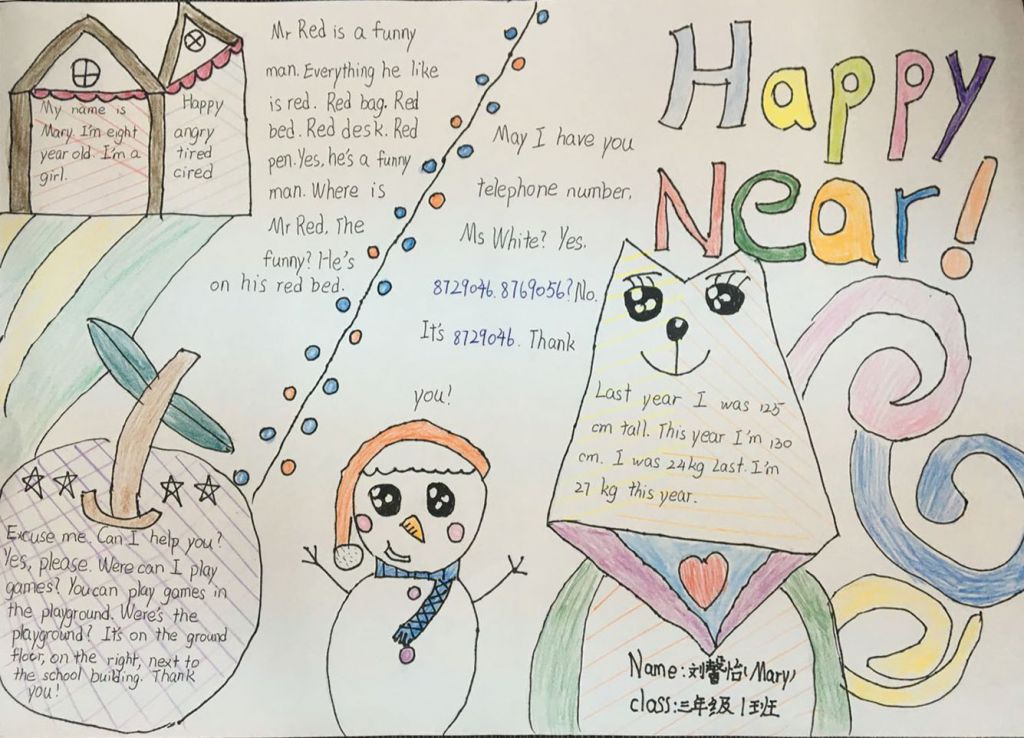 Happy
Near!
My name is
Mary. I'm eight
year old. I'm a
girl.
Happy
angry
tired
cired
Mr Red is a funny
man. Everything he like
is red. Red bag. Red
bed. Red desk. Red
pen. Yes, he's a funny
man. Where is
Mr Red. The
funny? He's
on his red bed.
May I have you
telephone number,
Ms White? Yes.
8729046. 8769056? No.
It's 8729046. Thank
you!
Last year I was 125
cm tall. This year I'm 130
cm. I was 24kg Last. I'm
27 kg this year.
Excuse me. Can I help you?
Yes, please. Were can I play
games? You can play games in
the playground. Were's the
playground? It's on the ground
floor, on the right, next to
the school building. Thank
you!
Name:刘馨怡(Mary)
class:三年级1班